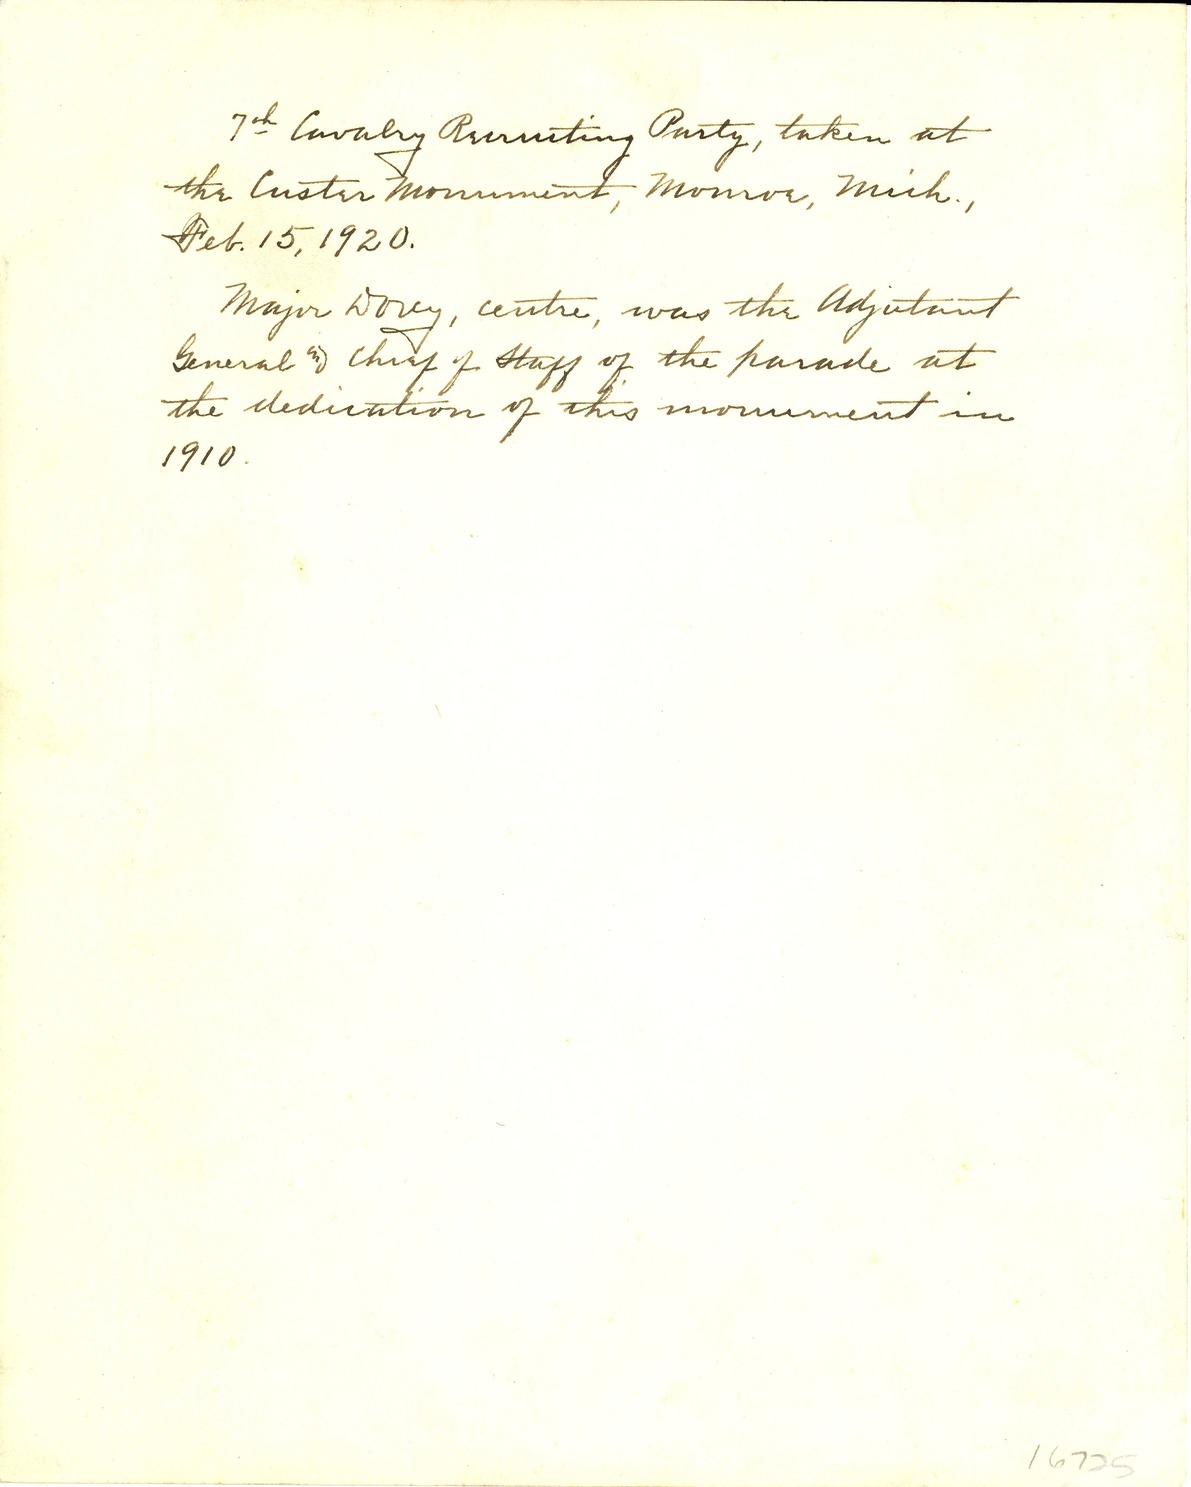 7th Cavalry Recruiting Party, taken at
the Custer Monument, Monroe, Mich.,
Feb. 15, 1920.
Major Dorey, centre, was the Adjutant
General and Chief of Staff of the parade at
the dedication of this monument in
1910.
16725